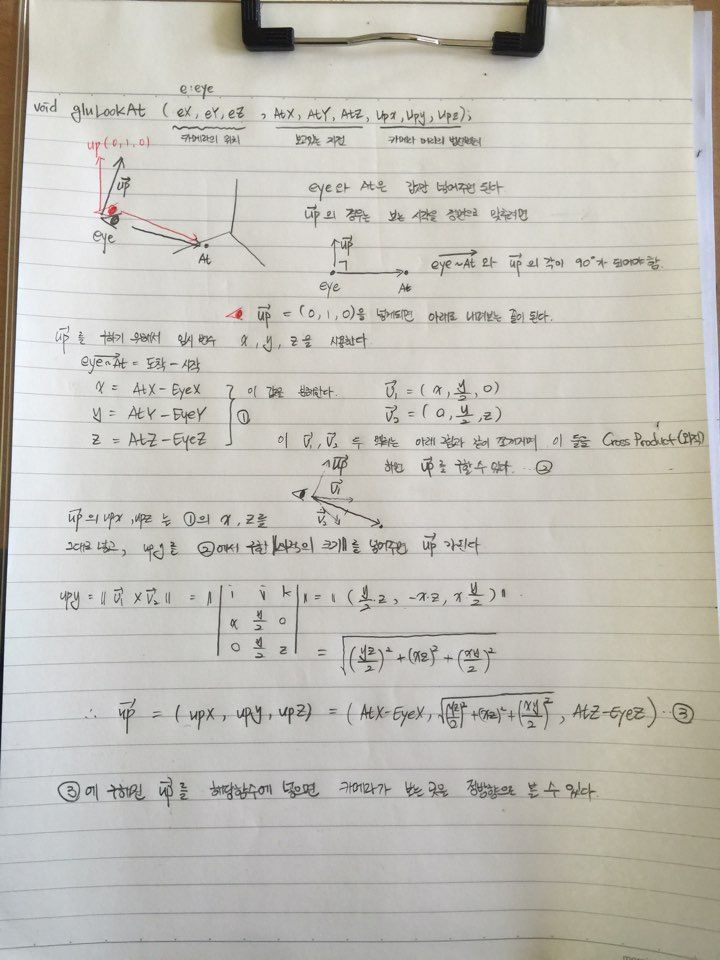 e:eye
void gluLookAt ( eX, eY, eZ , AtX, AtY, AtZ, upx, upy, upz);
카메라의 위치 보고있는 지점 카메라 머리의 법선벡터
up(0,1,0)
up
eye
At
eye와 At은 값만 넣어주면 된다
up의 경우는 보는 시각을 정면으로 맞추려면
up
eye At
eye~At 와 up의 각이 90°가 되어야 함.
up = (0,1,0)을 넣게되면 아래로 내려보는 꼴이 된다.
up를 구하기 위해서 임시 변수 x, y, z을 사용한다.
eye~At = 도착 - 시작
x = AtX - EyeX
y = AtY - EyeY
z = AtZ - EyeZ
① 이 값을 분해한다.
v₁ = (x, y/2, 0)
v₂ = (0, y/2, z)
이 v₁, v₂ 두 벡터는 아래 그림과 같이 쪼개지며 이 둘을 Cross Product(외적)
하면 up를 구할 수 있다. … ②
up
v₁
v₂
up의 upx, upz는 ①의 x, z를
그대로 넣고, upy를 ②에서 구한 ‖시각의 크기‖를 넣어주면 up가 된다
upy = ‖ v₁ × v₂ ‖ = ‖ | i j k | ‖ = ‖ (y/2·z, -x·z, x y/2) ‖
x y/2 0
0 y/2 z
= √((yz/2)² + (xz)² + (xy/2)²)
∴ up = (upX, upY, upZ) = (AtX-EyeX, √((yz/2)²+(xz)²+(xy/2)²), AtZ-EyeZ) … ③
③에 구해진 up를 해당함수에 넣으면 카메라가 보는 곳은 정방향으로 볼 수 있다.